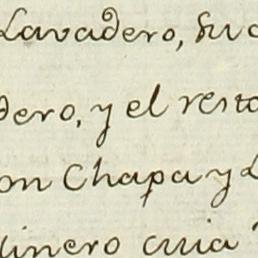 Lavadero, su
dero, y el resto
on Chapa y
dinero cuia